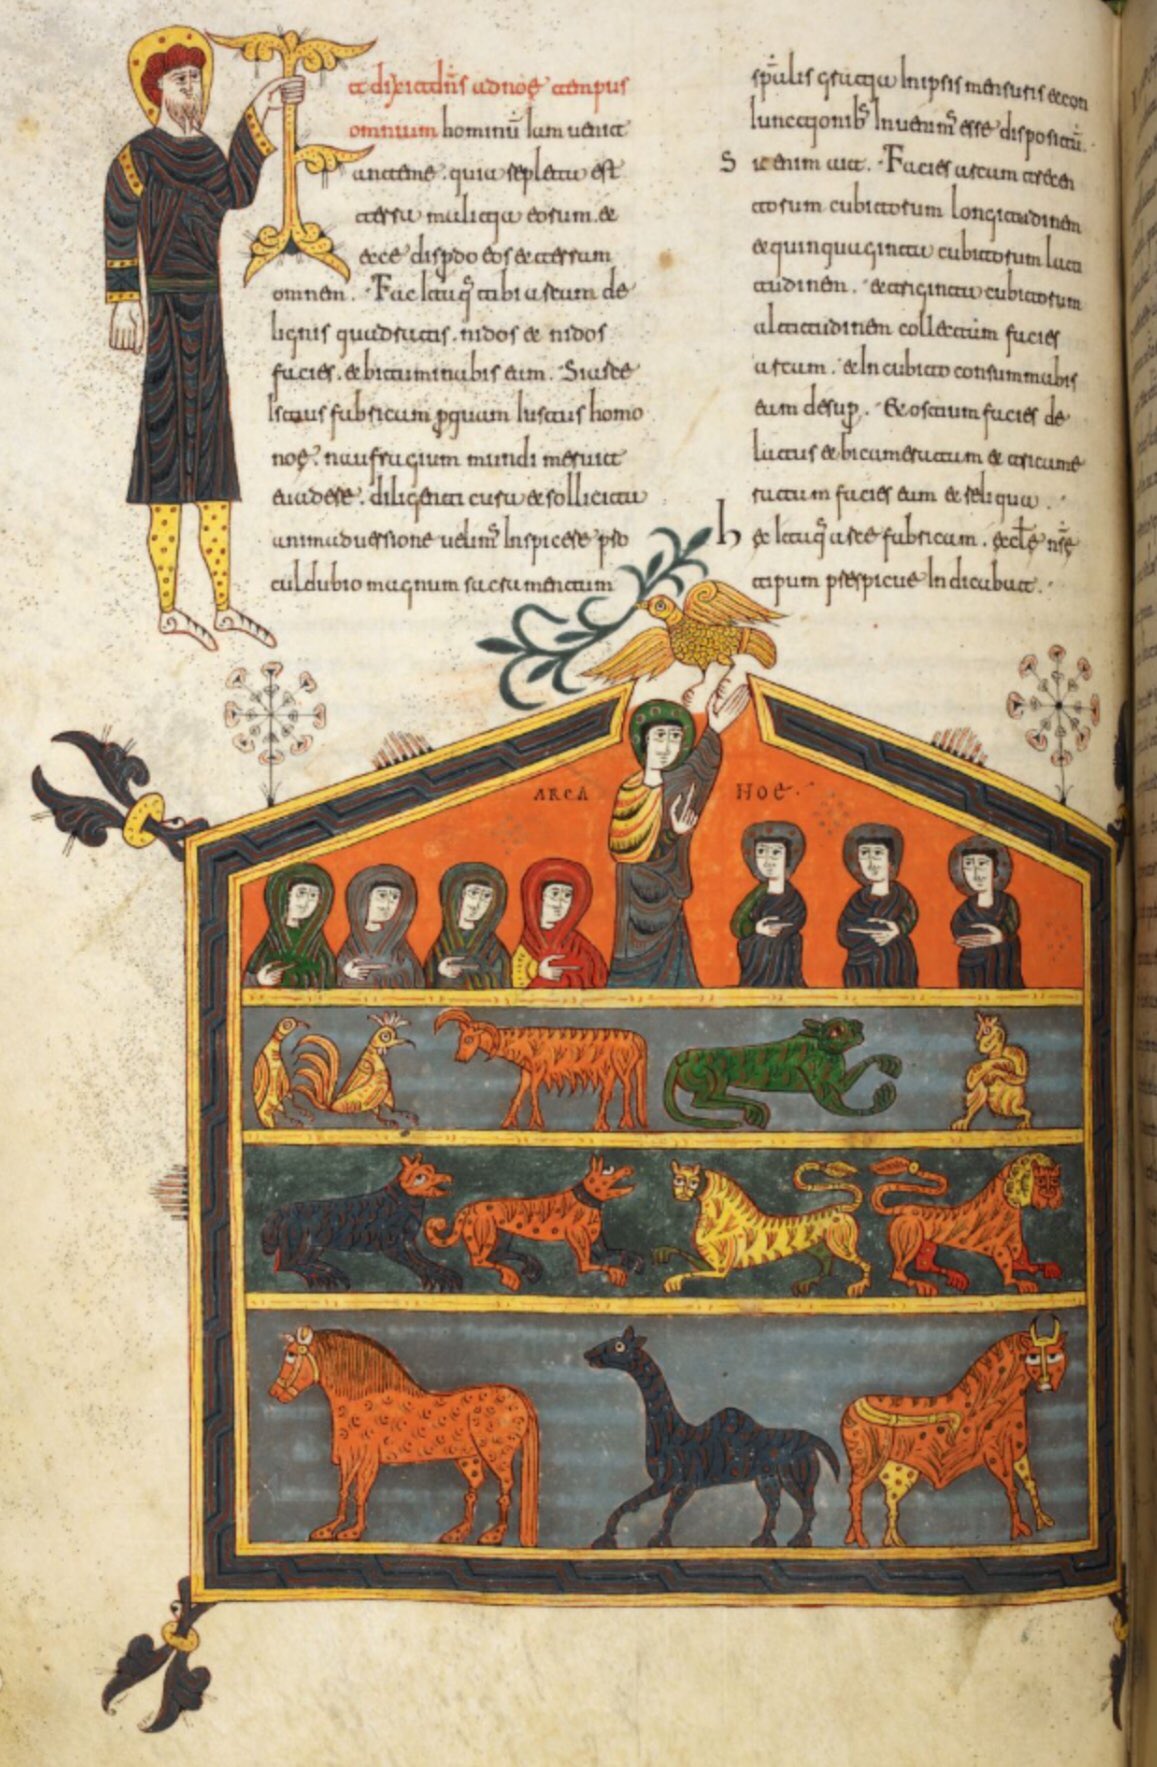 et dixit dn̄s ad noę tempus
omnium hominū iam uenit
ante me . quia repleta est
terra malitia eorum . et
ecce disperdo eos et terram
omnem . Fac itaq̄ tibi arcam de
lignis quadratis . nidos et nidos
facies . et bituminabis eam . Si arce
istius fabricam p̱quam iustus homo
noę . naufragium mundi meruit
euadere . diligenti cura et sollicita
animaduersione uelim̄ inspicere pro
cul dubio magnum sacramentum
sp̄alis gratia in ipsis mensuris et con
iunctionib̄ inuenim̄ esse dispositū .
Sic enim ait . Facies arcam trecen
torum cubitorum longitudinem
et quinquaginta cubitorum lati
tudinem . et triginta cubitorum
altitudinem collectam facies
arcam . et in cubito consummabis
eam desup̱ . Et ostium facies de
latus et bicameratam et tricame
ratam facies eam et reliqua .
hęc itaq̄ arce fabricam . ęcclę nr̄ę
tipum prespicue indicabat .
ARCA NOE